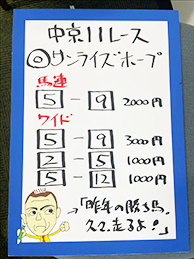 中京11レース
◎サンライズホープ
馬連
5 - 9 2000円
ワイド
5 - 9 3000円
2 - 5 1000円
5 - 12 1000円
→「昨年の勝ち馬。
走るよ!」